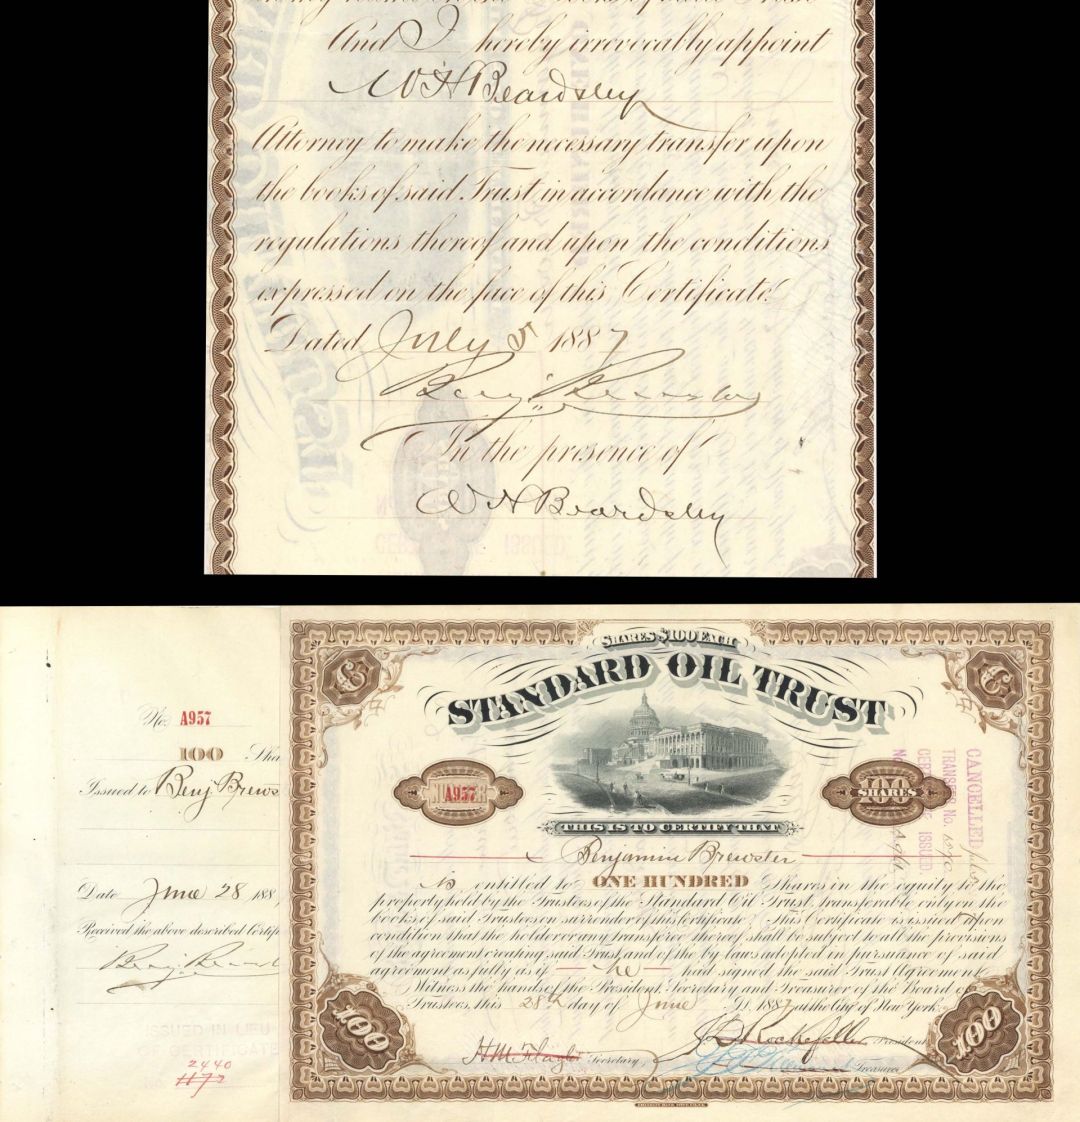 And I hereby irrevocably appoint
W H Beardsley
Attorney to make the necessary transfer upon
the books of said Trust in accordance with the
regulations thereof and upon the conditions
expressed on the face of this Certificate.
Dated July 5 1887
Benj. Brewster
In the presence of
W H Beardsley
No. A957
100 Sha
Issued to Benj Brews
Date June 28 188
Received the above described Certif
Benj. Brewster
ISSUED IN LIEU
CERTIFICATE
2440
SHARES $100 EACH
STANDARD OIL TRUST
A957
100
SHARES
CANCELLED
TRANSFER No.
CERTIFICATE ISSUED.
THIS IS TO CERTIFY THAT
Benjamin Brewster
is entitled to ONE HUNDRED Shares in the equity to the
property held by the Trustees of the Standard Oil Trust, transferable only on the
books of said Trustees on surrender of this Certificate. This Certificate is issued upon
condition that the holder or any transferee thereof shall be subject to all the provisions
of the agreement creating said Trust and of the by laws adopted in pursuance of said
agreement as fully as if he had signed the said Trust Agreement.
Witness the hands of the President, Secretary and Treasurer of the Board of
Trustees, this 28th day of June A.D. 1887 at the City of New York.
H M Flagler Secretary
J D Rockefeller President
Treasurer
100
100